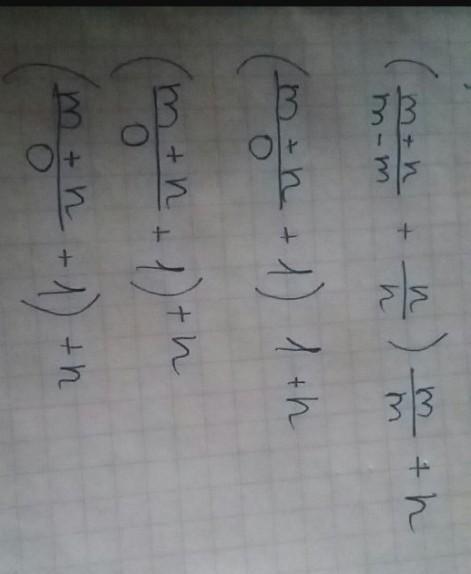 ( (m + n)/(m - m) + n/n ) m/m + n
( (m + n)/0 + 1) 1 + n
( (m + n)/0 + 1) + n
( (m + n)/0 + 1) + n